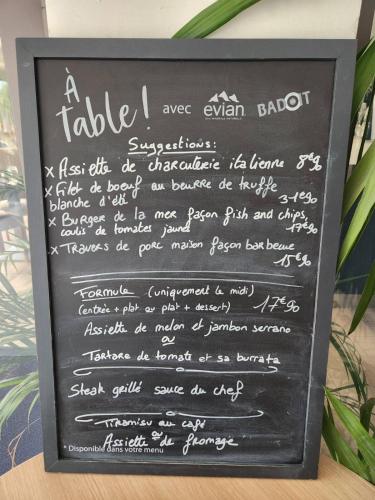 À
Table! avec evian BADOIT
Suggestions:
x Assiette de charcuterie italienne 8€90
x Filet de boeuf au beurre de truffe
blanche d'été 31€90
x Burger de la mer façon fish and chips,
coulis de tomates jaune 17€90
x Travers de porc maison façon barbecue
15€90
Formule (uniquement le midi)
(entrée + plat ou plat + dessert) 17€90
Assiette de melon et jambon serrano
ou
Tartare de tomate et sa burrata
Steak grillé sauce du chef
Tiramisu au café
ou
Assiette de fromage
* Disponible dans votre menu